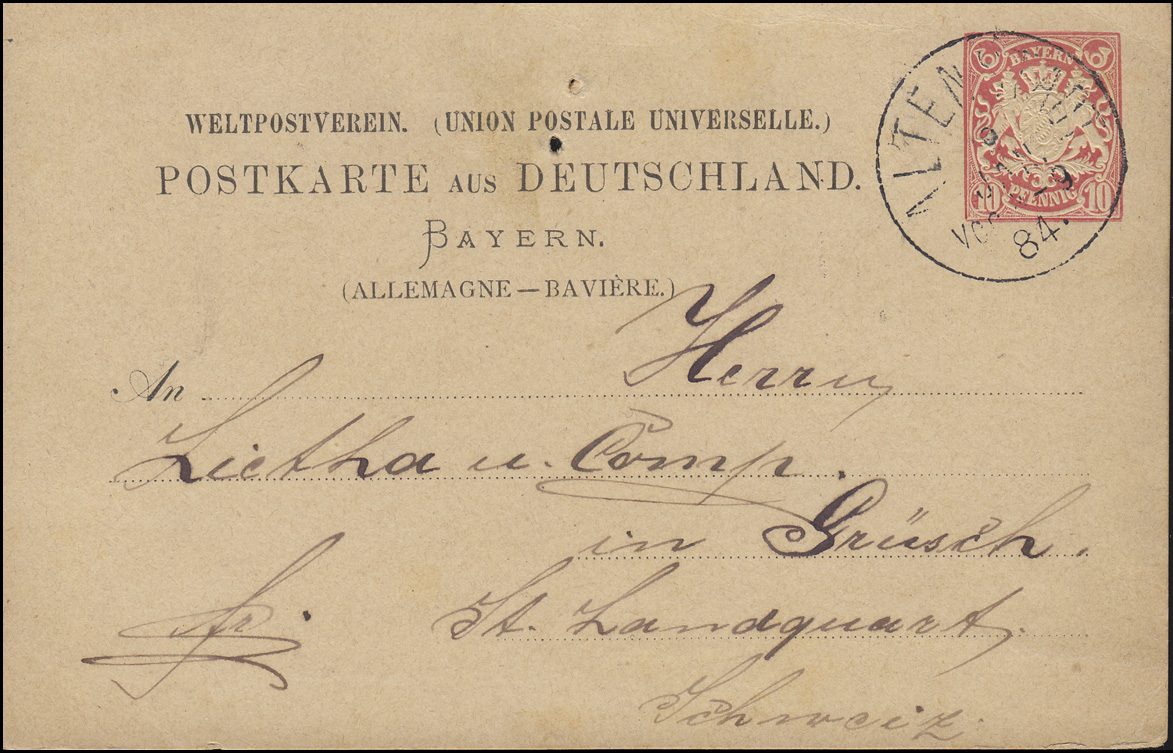 WELTPOSTVEREIN. (UNION POSTALE UNIVERSELLE.)
POSTKARTE AUS DEUTSCHLAND.
BAYERN.
(ALLEMAGNE—BAVIÈRE.)
BAYERN
10 PFENNIG 10
84.
An Herren
Lietha u. Comp.
in Grüsch.
fr. St. Landquart.
Schweiz.